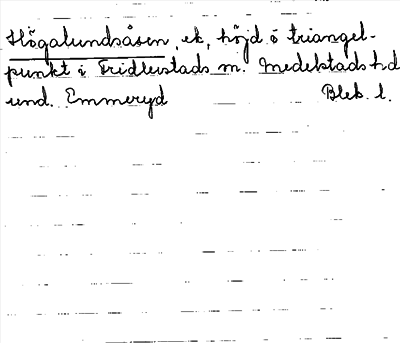 Högalundsåsen, ek, höjd o triangel-
punkt i Fridlevstads sn. Medelstads hd
und. Emmeryd Blek. l.